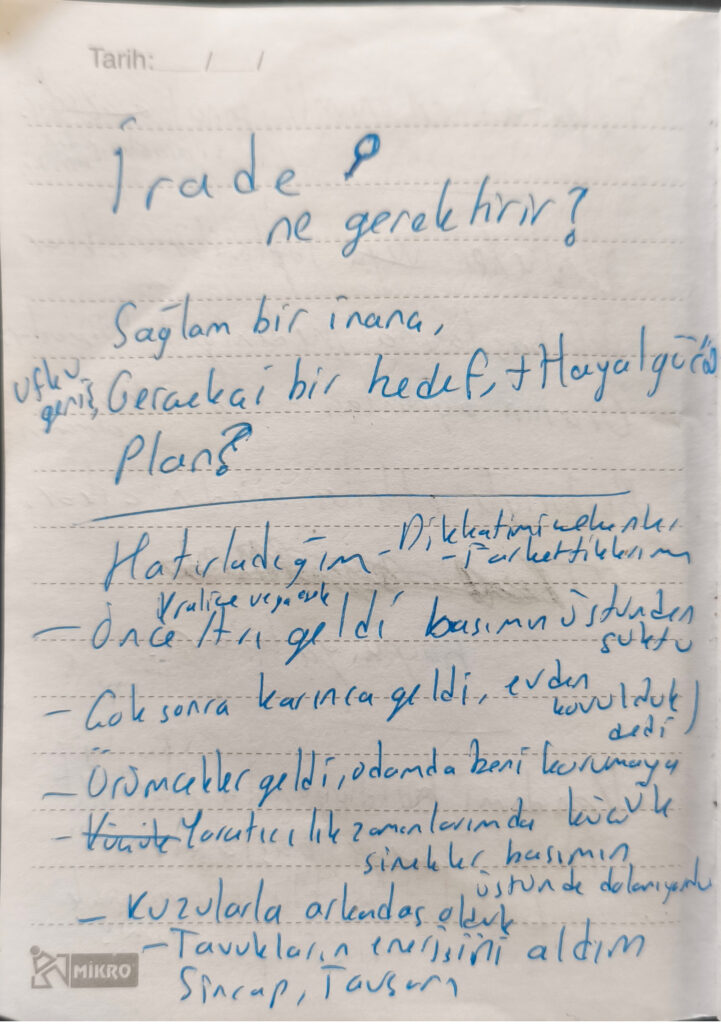 Tarih: / /
İrade
ne gerektirir?
Sağlam bir inanç,
ufku geniş, Gerçekçi bir hedef, + Hayalgücü
Plan?
Hatırladığım - Dikkatimi çekenler
- Farkettiklerim
Kraliçe veya erkek
- Önce Arı geldi başımın üstünden
uçtu
- Çok sonra karınca geldi, evden
kovulduk
dedi
- Örümcekler geldi, odamda beni korumaya
- Yaratıcılık zamanlarımda küçük
sinekler başımın
üstünde dolanıyordu
- Kuzularla arkadaş olduk
- Tavukların enerjisini aldım
Sincap, Tavşan
MİKRO